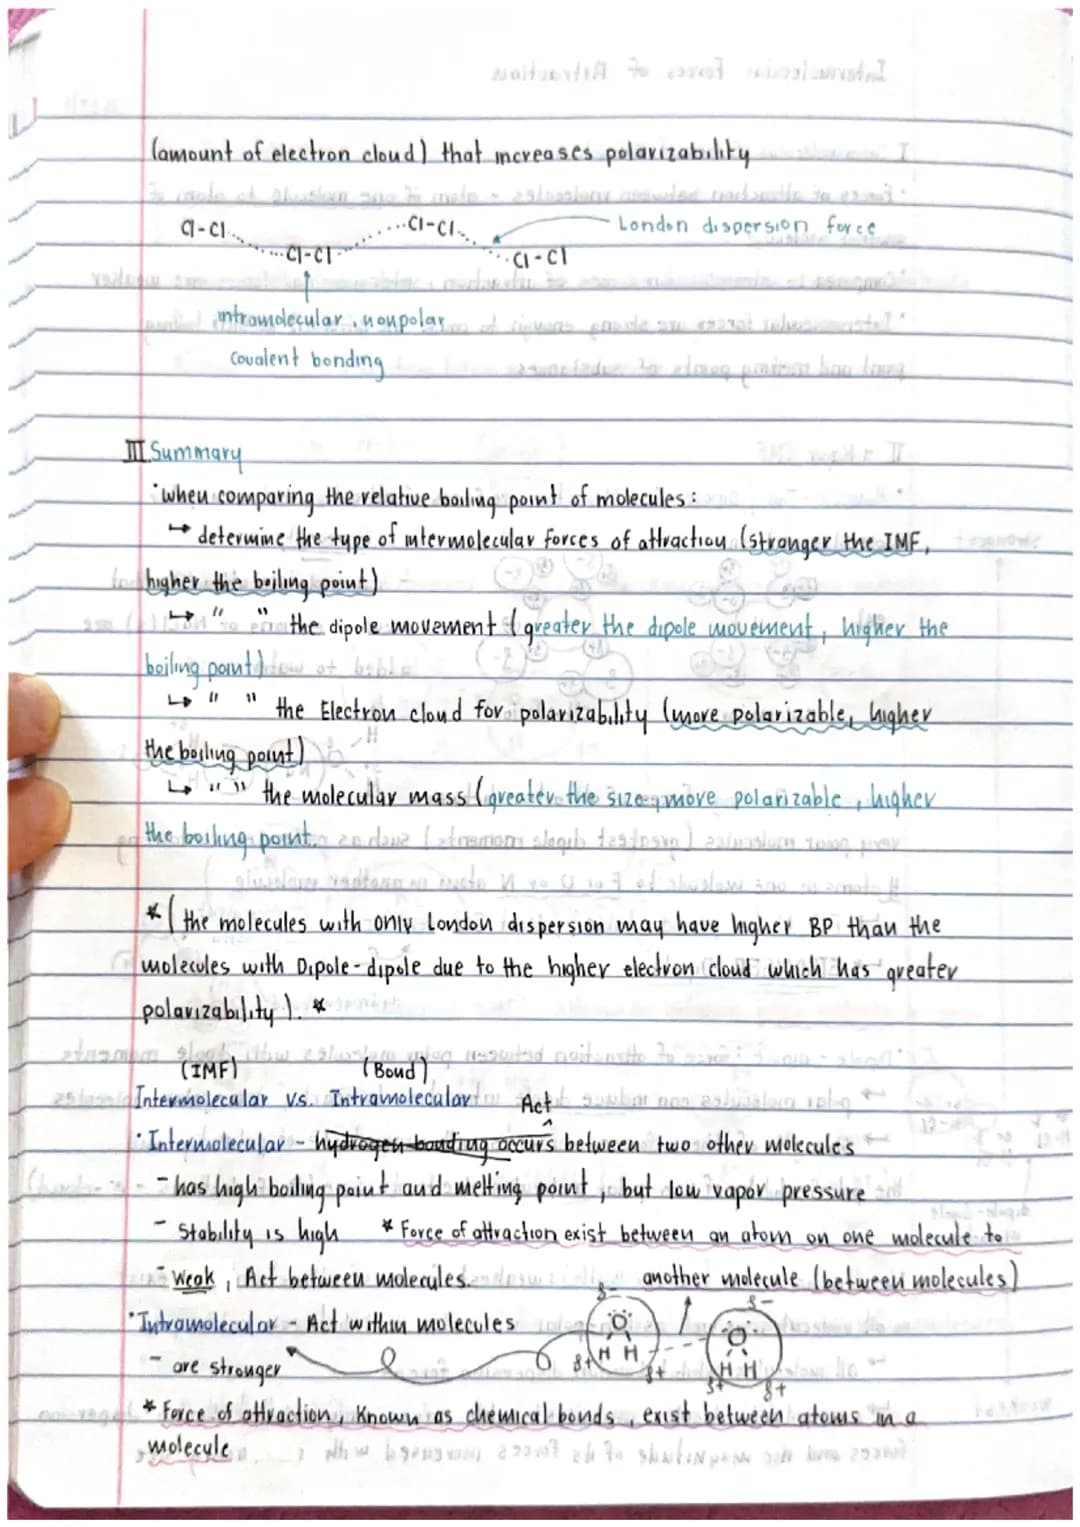 (amount of electron cloud) that increases polarizability
Cl-Cl Cl-Cl London dispersion force
Cl-Cl Cl-Cl
intramolecular, nonpolar
Covalent bonding
III Summary
· when comparing the relative boiling point of molecules:
↳ determine the type of intermolecular forces of attraction (stronger the IMF,
higher the boiling point)
↳ " " the dipole movement (greater the dipole movement, higher the
boiling point)
↳ " " the Electron cloud for polarizability (more polarizable, higher
the boiling point)
↳ " " the molecular mass (greater the size, more polarizable, higher
the boiling point.
* (the molecules with only London dispersion may have higher BP than the
molecules with Dipole-dipole due to the higher electron cloud which has greater
polarizability). *
(IMF) (Bond)
Intermolecular vs. Intramolecular
Act
· Intermolecular - hydrogen bonding occurs between two other molecules
- has high boiling point and melting point, but low vapor pressure
- Stability is high * Force of attraction exist between an atom on one molecule to
- Weak, Act between molecules. another molecule (between molecules)
· Intramolecular - Act within molecules
- are stronger
δ- δ-
O O
H H H H
δ+ δ+ δ+ δ+
* Force of attraction, Known as chemical bonds, exist between atoms in a
molecule